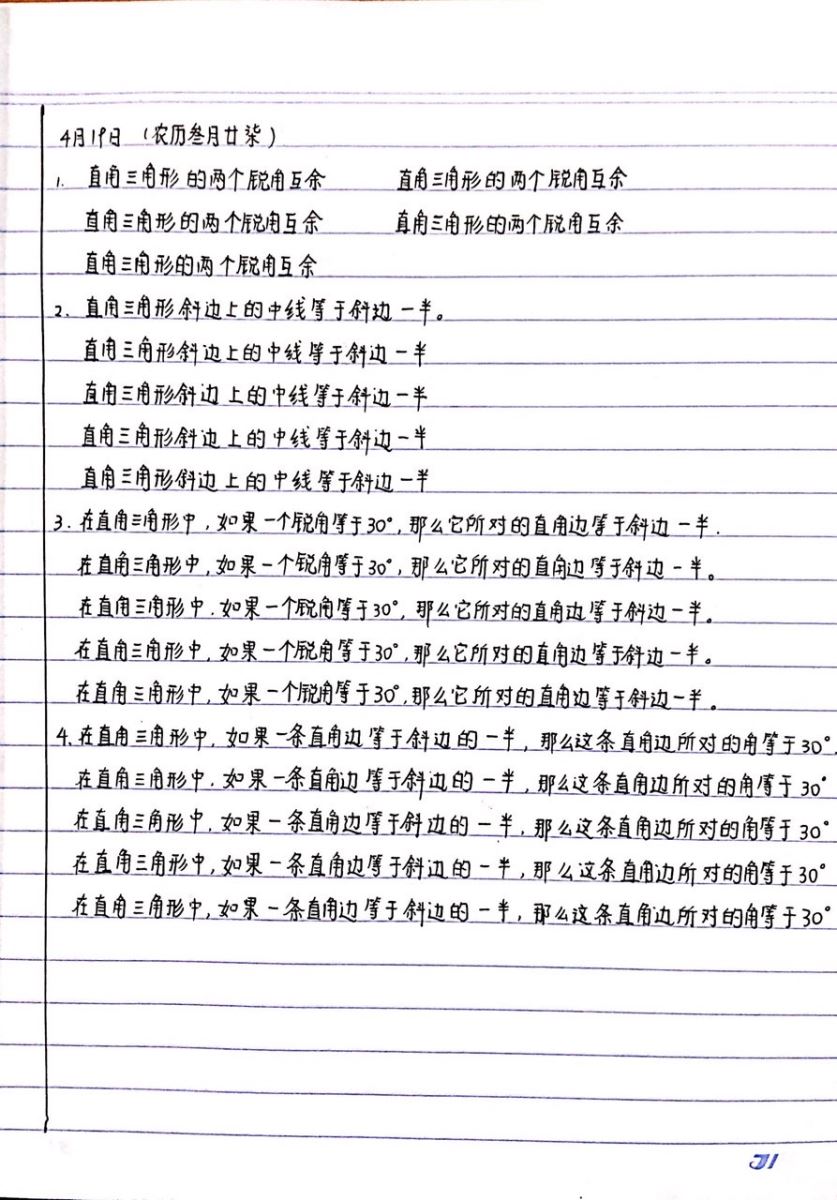 4月19日（农历叁月廿柒）
1. 直角三角形的两个锐角互余 直角三角形的两个锐角互余
直角三角形的两个锐角互余 直角三角形的两个锐角互余
直角三角形的两个锐角互余
2. 直角三角形斜边上的中线等于斜边一半。
直角三角形斜边上的中线等于斜边一半
直角三角形斜边上的中线等于斜边一半
直角三角形斜边上的中线等于斜边一半
直角三角形斜边上的中线等于斜边一半
3. 在直角三角形中，如果一个锐角等于30°，那么它所对的直角边等于斜边一半.
在直角三角形中，如果一个锐角等于30°，那么它所对的直角边等于斜边一半。
在直角三角形中．如果一个锐角等于30°，那么它所对的直角边等于斜边一半。
在直角三角形中，如果一个锐角等于30°，那么它所对的直角边等于斜边一半。
在直角三角形中，如果一个锐角等于30°，那么它所对的直角边等于斜边一半。
4. 在直角三角形中，如果一条直角边等于斜边的一半，那么这条直角边所对的角等于30°.
在直角三角形中．如果一条直角边等于斜边的一半，那么这条直角边所对的角等于30°
在直角三角形中，如果一条直角边等于斜边的一半，那么这条直角边所对的角等于30°
在直角三角形中，如果一条直角边等于斜边的一半，那么这条直角边所对的角等于30°
在直角三角形中，如果一条直角边等于斜边的一半，那么这条直角边所对的角等于30°